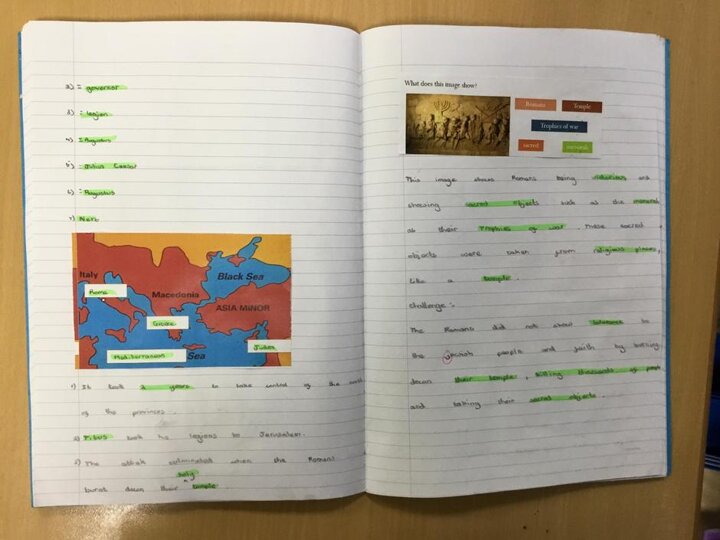 2) = governor
3) = legion
4) = Augustus
5) = Julius Caesar
6) = Augustus
7) Nero
Italy
Black Sea
Rome
Macedonia
ASIA MINOR
Greece
Judea
Mediterranean Sea
1) It took 2 years to take control of the
of the provinces.
2) Titus took his legions to Jerusalem.
3) The attack culminated when the Romans
holy
burnt down their temple.
What does this image show?
Romans
Temple
Trophies of war
sacred
menorah
This image shows Romans being victorious and
showing sacred objects such as the menorah
as their Trophies of war. These sacred
objects were taken from religious places,
like a temple
challenge:-
The Romans did not show tolerance to
the jewish people and faith by burning
down their temple, killing thousands of people
and taking their sacred objects.